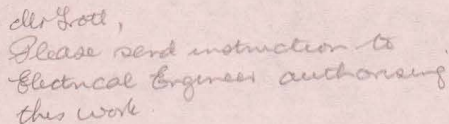 Mr Trott,
Please send instruction to
Electrical Engineer authorising
this work.